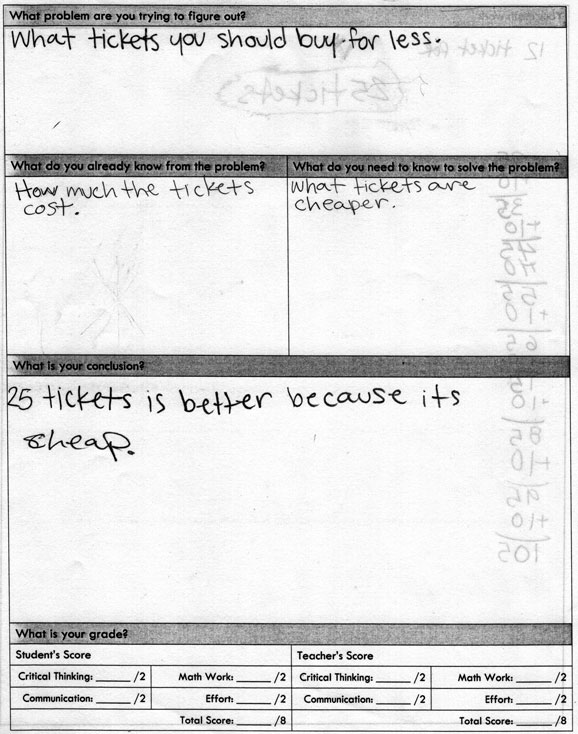 What problem are you trying to figure out?
What tickets you should buy for less.
12 ticket for
25 tickets
What do you already know from the problem?
What do you need to know to solve the problem?
How much the tickets
cost.
What tickets are
cheaper.
35
+10
45
+10
85
+10
95
+10
105
What is your conclusion?
25 tickets is better because its
cheap.
What is your grade?
Student's Score
Teacher's Score
Critical Thinking: ______ /2
Math Work: ______ /2
Critical Thinking: ______ /2
Math Work: ______ /2
Communication: ______ /2
Effort: ______ /2
Communication: ______ /2
Effort: ______ /2
Total Score: ______ /8
Total Score: ______ /8